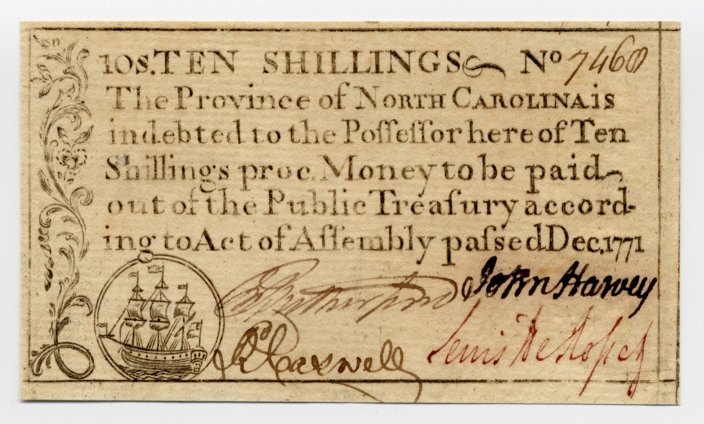 10S. TEN SHILLINGS No 7468
The Province of NORTH CAROLINA is
indebted to the Poſſeſſor hereof Ten
Shillings proc. Money to be paid
out of the Public Treaſury accord-
ing to Act of Aſſembly paſſed Dec. 1771
Rutherfurd John Harvey
Lewis De Roſſet